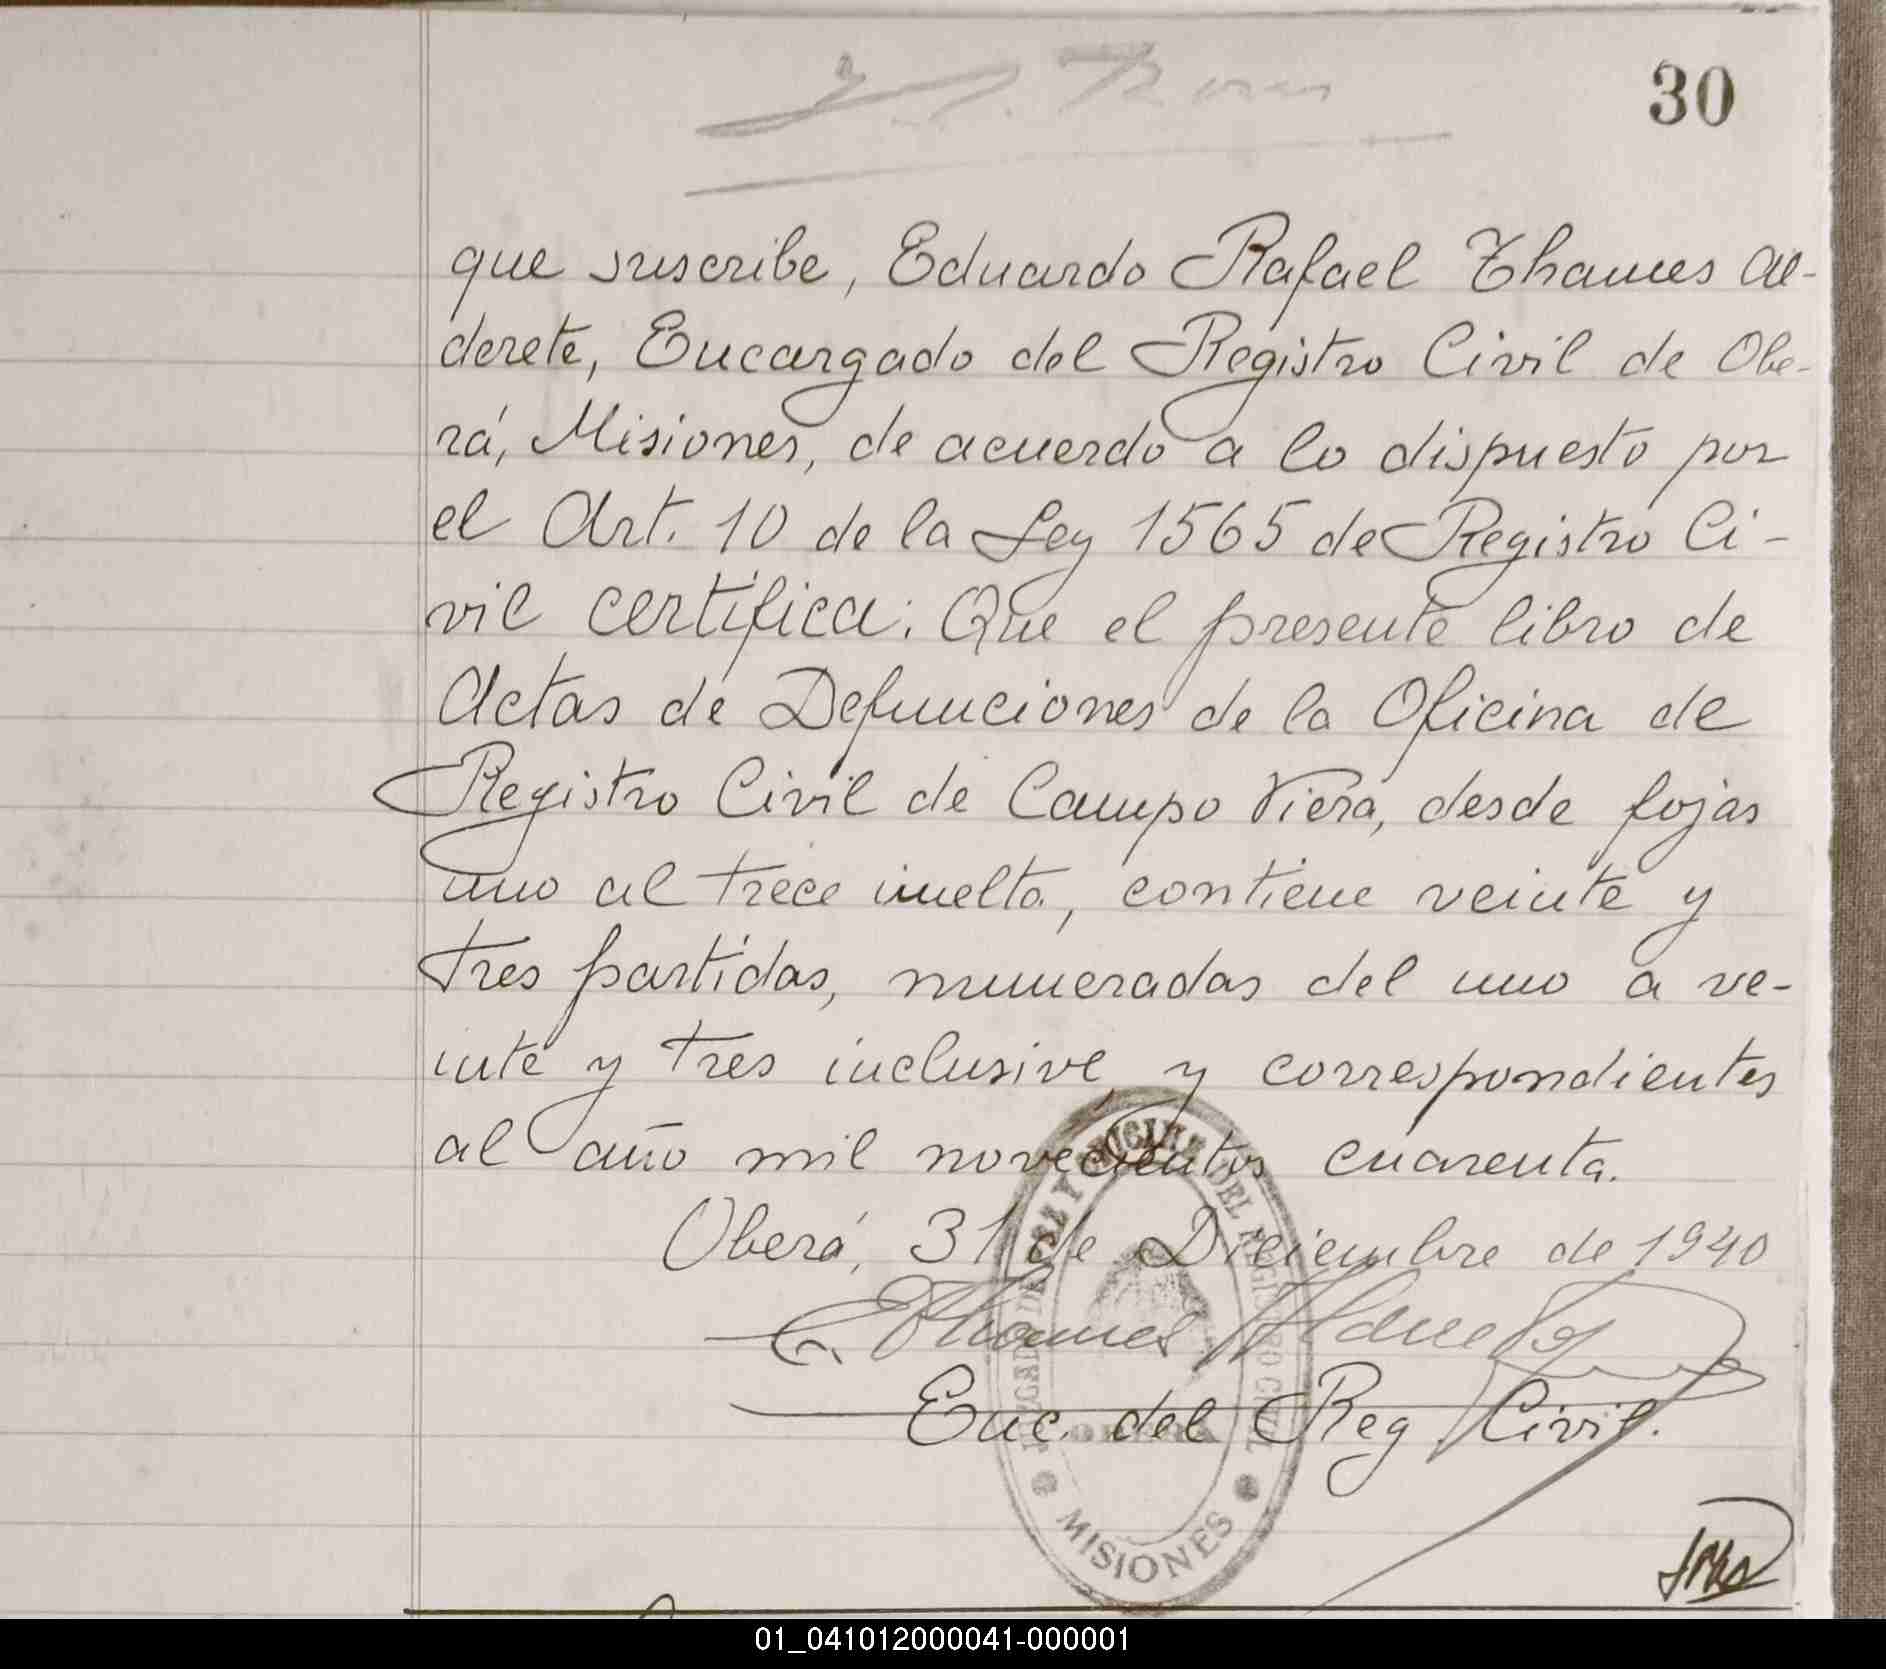 30
que suscribe, Eduardo Rafael Thames Al-
derete, Encargado del Registro Civil de Obe-
rá, Misiones, de acuerdo a lo dispuesto por
el Art. 10 de la Ley 1565 de Registro Ci-
vil certifica: Que el presente libro de
Actas de Defunciones de la Oficina de
Registro Civil de Campo Viera, desde fojas
uno al trece vuelta, contiene veinte y
tres partidas, numeradas del uno a ve-
inte y tres inclusive y correspondientes
al año mil novecientos cuarenta.
Oberá, 31 de Diciembre de 1940
E. Thames Alderete
Enc. del Reg Civil.
JUZGADO DE PAZ Y OFICINA DEL REGISTRO CIVIL
OBERA
MISIONES
01_041012000041-000001